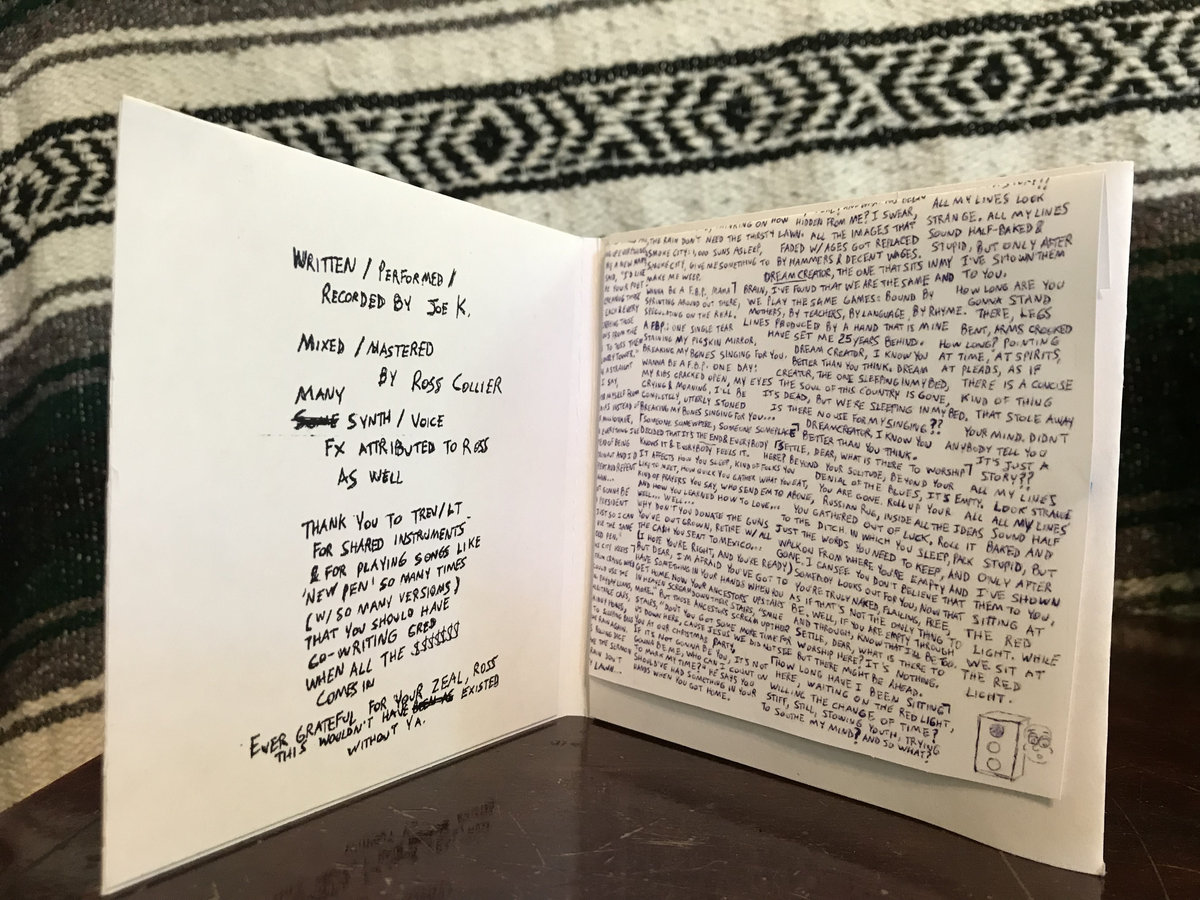 WRITTEN / PERFORMED /
RECORDED BY JOE K.
MIXED / MASTERED
BY ROSS COLLIER
MANY
SOME SYNTH / VOICE
FX ATTRIBUTED TO ROSS
AS WELL
THANK YOU TO TREV/LT.
FOR SHARED INSTRUMENTS
& FOR PLAYING SONGS LIKE
'NEW PEN' SO MANY TIMES
(W/ SO MANY VERSIONS)
THAT YOU SHOULD HAVE
CO-WRITING CRED
WHEN ALL THE $$$$$$$
COMES IN
EVER GRATEFUL FOR YOUR ZEAL, ROSS
THIS WOULDN'T HAVE EXISTED
WITHOUT YA.
THE RAIN DON'T NEED THE THIRSTY
SMOKE CITY: 1,000 SUNS ASLEEP,
SMOKE CITY, GIVE ME SOMETHING TO
MAKE ME WEEP.
WANNA BE A F.B.P. MAMA
SPRINTING AROUND OUT THERE,
SPECULATING ON THE REAL.
A FBP: ONE SINGLE TEAR
STAINING MY PIGSKIN MIRROR,
BREAKING MY BONES SINGING FOR YOU.
WANNA BE A F.B.P. ONE DAY!
MY RIBS CRACKED OPEN, MY EYES
CRYING & MOANING, I'LL BE
COMPLETELY, UTTERLY STONED
BREAKING MY BONES SINGING FOR YOU...
SOMEONE SOMEWHERE, SOMEONE SOMEPLACE
DECIDED THAT IT'S THE END & EVERYBODY
KNOWS IT & EVERYBODY FEELS IT.
IT AFFECTS HOW YOU SLEEP, KIND OF FOLKS YOU
LIKE TO MEET, HOW QUICK YOU GATHER WHAT YOU EAT,
KIND OF PRAYERS YOU SAY, WHO SEND EM TO ABOVE,
AND HOW YOU LEARNED HOW TO LOVE...
WELL... WELL...
WHY DON'T YOU DONATE THE GUNS
YOU'VE OUTGROWN, RETIRE W/ ALL
THE CASH YOU SENT TO MEXICO...
I HOPE YOU'RE RIGHT, AND YOU'RE READY)
BUT DEAR, I'M AFRAID YOU'VE GOT TO
HAVE SOMETHING IN YOUR HANDS WHEN YOU
GET HOME. NOW YOUR ANCESTORS UPSTAIRS
IN HEAVEN SCREAM DOWN THEIR STAIRS, "SMILE
MORE." BUT THOSE ANCESTORS SCREAM UP THEIR
STAIRS, "DON'T YOU GOT SOME MORE TIME FOR
US DOWN HERE, CAUSE JESUS WE DID NOT SEE
YOU AT OUR CHRISTMAS PARTY.
IF IT'S NOT GONNA BE YOU, IT'S NOT
GONNA BE ME, WHO CAN I COUNT ON
TO MARK MY TIME?" HE SAYS YOU
SHOULD'VE HAD SOMETHING IN YOUR
HANDS WHEN YOU GOT HOME.
HIDDEN FROM ME? I SWEAR,
LAWN. ALL THE IMAGES THAT
FADED W/ AGES GOT REPLACED
BY HAMMERS & DECENT WAGES.
DREAM CREATOR, THE ONE THAT SITS IN MY
BRAIN, I'VE FOUND THAT WE ARE THE SAME AND
WE PLAY THE SAME GAMES: BOUND BY
MOTHERS, BY TEACHERS, BY LANGUAGE, BY RHYME.
LINES PRODUCED BY A HAND THAT IS MINE
HAVE SET ME 25 YEARS BEHIND.
DREAM CREATOR, I KNOW YOU
BETTER THAN YOU THINK. DREAM
CREATOR, THE ONE SLEEPING IN MY BED,
THE SOUL OF THIS COUNTRY IS GONE,
IT'S DEAD, BUT WE'RE SLEEPING IN MY BED,
IS THERE NO USE FOR MY SINGING??
DREAM CREATOR I KNOW YOU
BETTER THAN YOU THINK.
SETTLE, DEAR, WHAT IS THERE TO WORSHIP
HERE? BEYOND YOUR SOLITUDE, BEYOND YOUR
DENIAL OF THE BLUES, IT'S EMPTY.
YOU ARE GONE, ROLL UP YOUR
RUSSIAN RUG, INSIDE ALL THE IDEAS
YOU GATHERED OUT OF LUCK, ROLL IT
TO THE DITCH IN WHICH YOU SLEEP, PACK
JUST THE WORDS YOU NEED TO KEEP, AND
WALK ON FROM WHERE YOU'RE EMPTY AND
GONE. I CAN SEE YOU DON'T BELIEVE THAT
SOMEBODY LOOKS OUT FOR YOU, NOW THAT
YOU'RE TRULY NAKED, FLAILING, FREE,
AS IF THAT'S NOT THE ONLY THING TO
BE. WELL, IF YOU ARE EMPTY THROUGH
AND THROUGH, KNOW THAT I'LL BE TOO.
SETTLE, DEAR, WHAT IS THERE TO
WORSHIP HERE? IT'S NOTHING,
BUT THERE MIGHT BE AHEAD.
HOW LONG HAVE I BEEN SITTING
HERE, WAITING ON THE RED LIGHT,
WILLING THE CHANGE OF TIME?
STIFF, STILL, STOWING YOUTH, TRYING
TO SOOTHE MY MIND? AND SO WHAT?
ALL MY LINES LOOK
STRANGE. ALL MY LINES
SOUND HALF-BAKED &
STUPID, BUT ONLY AFTER
I'VE SHOWN THEM
TO YOU.
HOW LONG ARE YOU
GONNA STAND
THERE, LEGS
BENT, ARMS CROOKED
HOW LONG? POINTING
AT TIME, AT SPIRITS,
AT PLEADS, AS IF
THERE IS A CONCISE
KIND OF THING
THAT STOLE AWAY
YOUR MIND. DIDN'T
ANYBODY TELL YOU
IT'S JUST A
STORY??
ALL MY LINES
LOOK STRANGE
ALL MY LINES
SOUND HALF
BAKED AND
STUPID, BUT
ONLY AFTER
I'VE SHOWN
THEM TO YOU,
SITTING AT
THE RED
LIGHT. WHILE
WE SIT AT
THE RED
LIGHT.